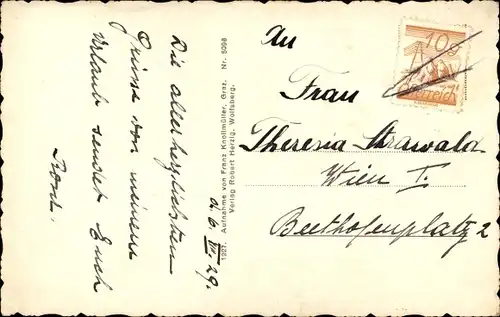 Die allerherzlichsten
Grüsse von meinem
Urlaub sendet Euch
d. 6. VII. 29.
1927. Aufnahme von Franz Knollmüller, Graz. Nr. 5098
Verlag Robert Herzig, Wolfsberg.
An
Frau
Theresia Strawald
Wien I.
Beethofenplatz 2
10 g